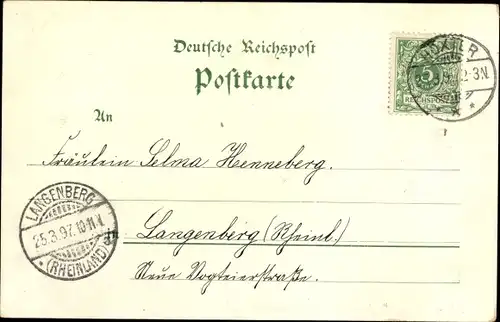 Deutsche Reichspost
Postkarte
HÖXTER
2-3N.
5
REICHSPOST
An
Fräulein Selma Henneberg.
LANGENBERG
25.3.97.10-11.V.
*(RHEINLAND)*
in Langenberg (Rheinl.)
Neue Vogteierstraße.